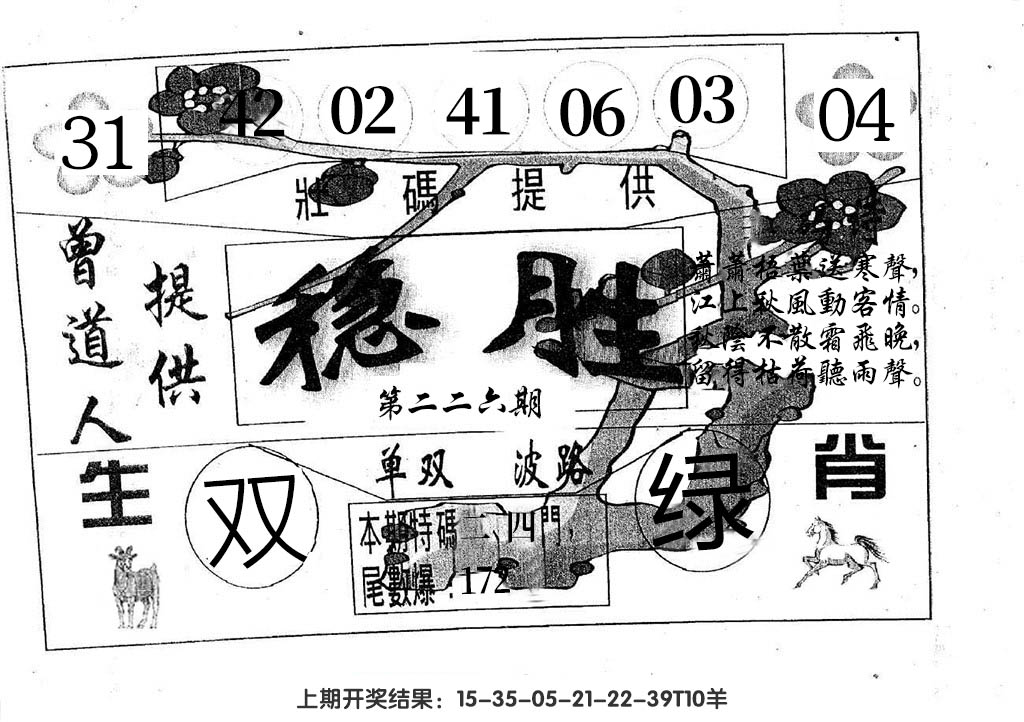 31 42 02 41 06 03 04
壯碼提供
詩
曾道人
提供
稳胜
第二二六期
蕭蕭梧葉送寒聲，
江上秋風動客情。
秋陰不散霜飛晚，
留得枯荷聽雨聲。
生肖
双
单双 波路
绿
本期特碼二、四門，
尾數爆：172
上期开奖结果：15-35-05-21-22-39T10羊